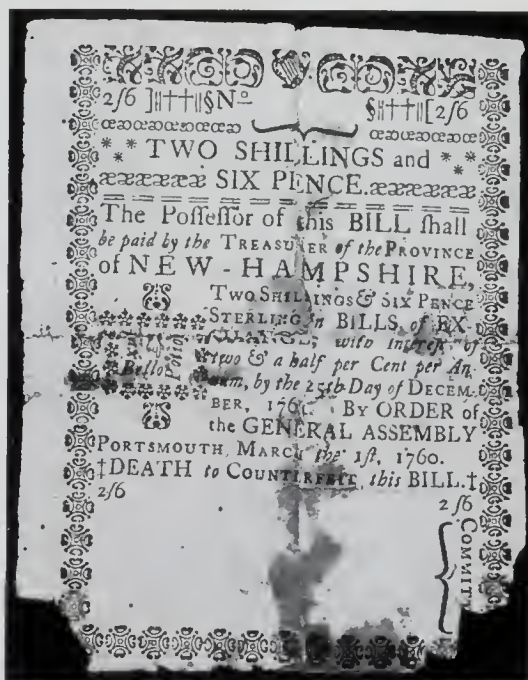 2ſ6 ]||††||§Nº §||††||[2ſ6
œɔœɔœɔœœɔ œɔœɔœɔœ
*** TWO SHILLINGS and ***
ææææææ SIX PENCE.ææææææ
The Poſſeſſor of this BILL ſhall
be paid by the TREASURER of the PROVINCE
of NEW-HAMPSHIRE,
TWO SHILLINGS & SIX PENCE
STERLING in BILLS, of EX-
CHANGE, with Intereſt, of
two & a half per Cent per An-
num, by the 25th Day of DECEM-
BER, 176 . BY ORDER of
the GENERAL ASSEMBLY
PORTSMOUTH, MARCH the 1ſt, 1760.
‡DEATH to COUNTERFEIT, this BILL.‡
2ſ6 2ſ6
Bello
COMMIT